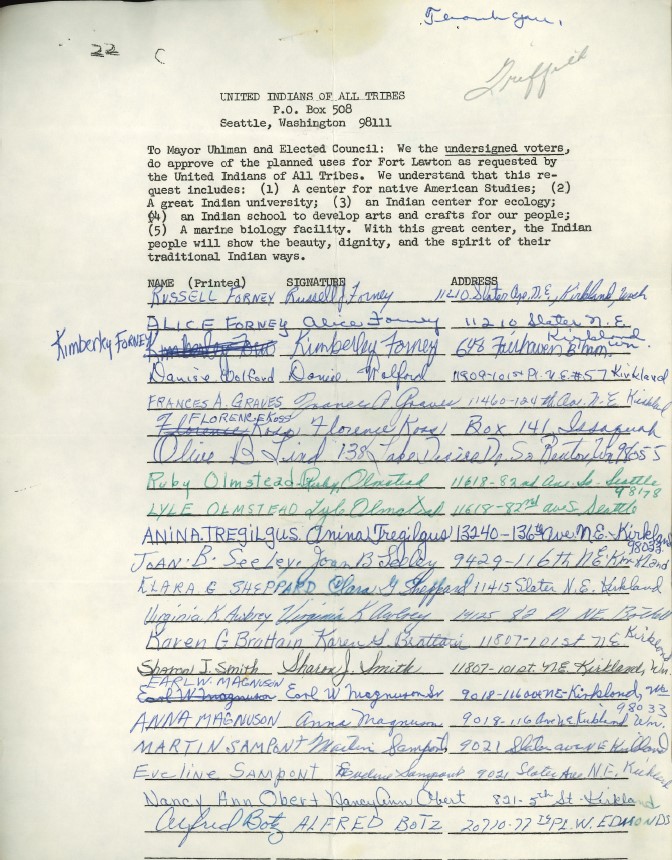 22 C
UNITED INDIANS OF ALL TRIBES
P.O. Box 508
Seattle, Washington 98111
To Mayor Uhlman and Elected Council: We the undersigned voters,
do approve of the planned uses for Fort Lawton as requested by
the United Indians of All Tribes. We understand that this re-
quest includes: (1) A center for native American Studies; (2)
A great Indian university; (3) an Indian center for ecology;
(4) an Indian school to develop arts and crafts for our people;
(5) A marine biology facility. With this great center, the Indian
people will show the beauty, dignity, and the spirit of their
traditional Indian ways.
NAME (Printed) SIGNATURE ADDRESS
RUSSELL FORNEY Russell J. Forney 11210 Slater Ave. N.E., Kirkland, Wash
ALICE FORNEY Alice Forney 11210 Slater N.E. Kirkland
Kimberley FORNEY Kimberley Forney 648 Fairhaven B'ham. Wn.
Danise Wolford Danise Wolford 11909-101st Pl. N.E. #57 Kirkland
FRANCES A. GRAVES Frances A Graves 11460-124th Ave. N.E. Kirkland
FLORENCE ROSE
Florence Rose Florence Rose Box 141, Issaquah
Olive B Lind 138 Lake Desire Dr. So Renton, Wa 98055
Ruby Olmstead Ruby Olmstead 11618-82nd Ave. So. Seattle
98178
LYLE OLMSTEAD Lyle Olmstead 11618-82nd ave S Seattle
ANINA TREGILGUS Anina Tregilgus 13240-136th Ave. N.E. Kirkland
98033
JOAN B. Seeley Joan B Seeley 9429-116th NE Kirkland
KLARA G SHEPPARD Clara G Sheppard 11415 Slater N.E. Kirkland
Virginia K. Aubrey Virginia K Aubrey 82 Pl NE Bothell
Karen G Brattain Karen G. Brattain 11807-101st N.E. Kirkland
Sharon J. Smith Sharon J. Smith 11807-101st. N.E. Kirkland, Wn.
EARL W. MAGNUSON
Earl W Magnuson Earl W Magnuson Sr 9018-116 ave NE-Kirkland, Wa
98033
ANNA MAGNUSON Anna Magnuson 9018-116 Ave NE Kirkland Wn.
MARTIN SAMPONT Martin Sampont 9021 Slater ave NE Kirkland
Eveline SAMPONT Eveline Sampont 9021 Slater Ave N.E. Kirkland
Nancy Ann Obert Nancy Ann Obert 821-5th St. Kirkland
Alfred Botz ALFRED BOTZ 20710-77 Pl. W. EDMONDS